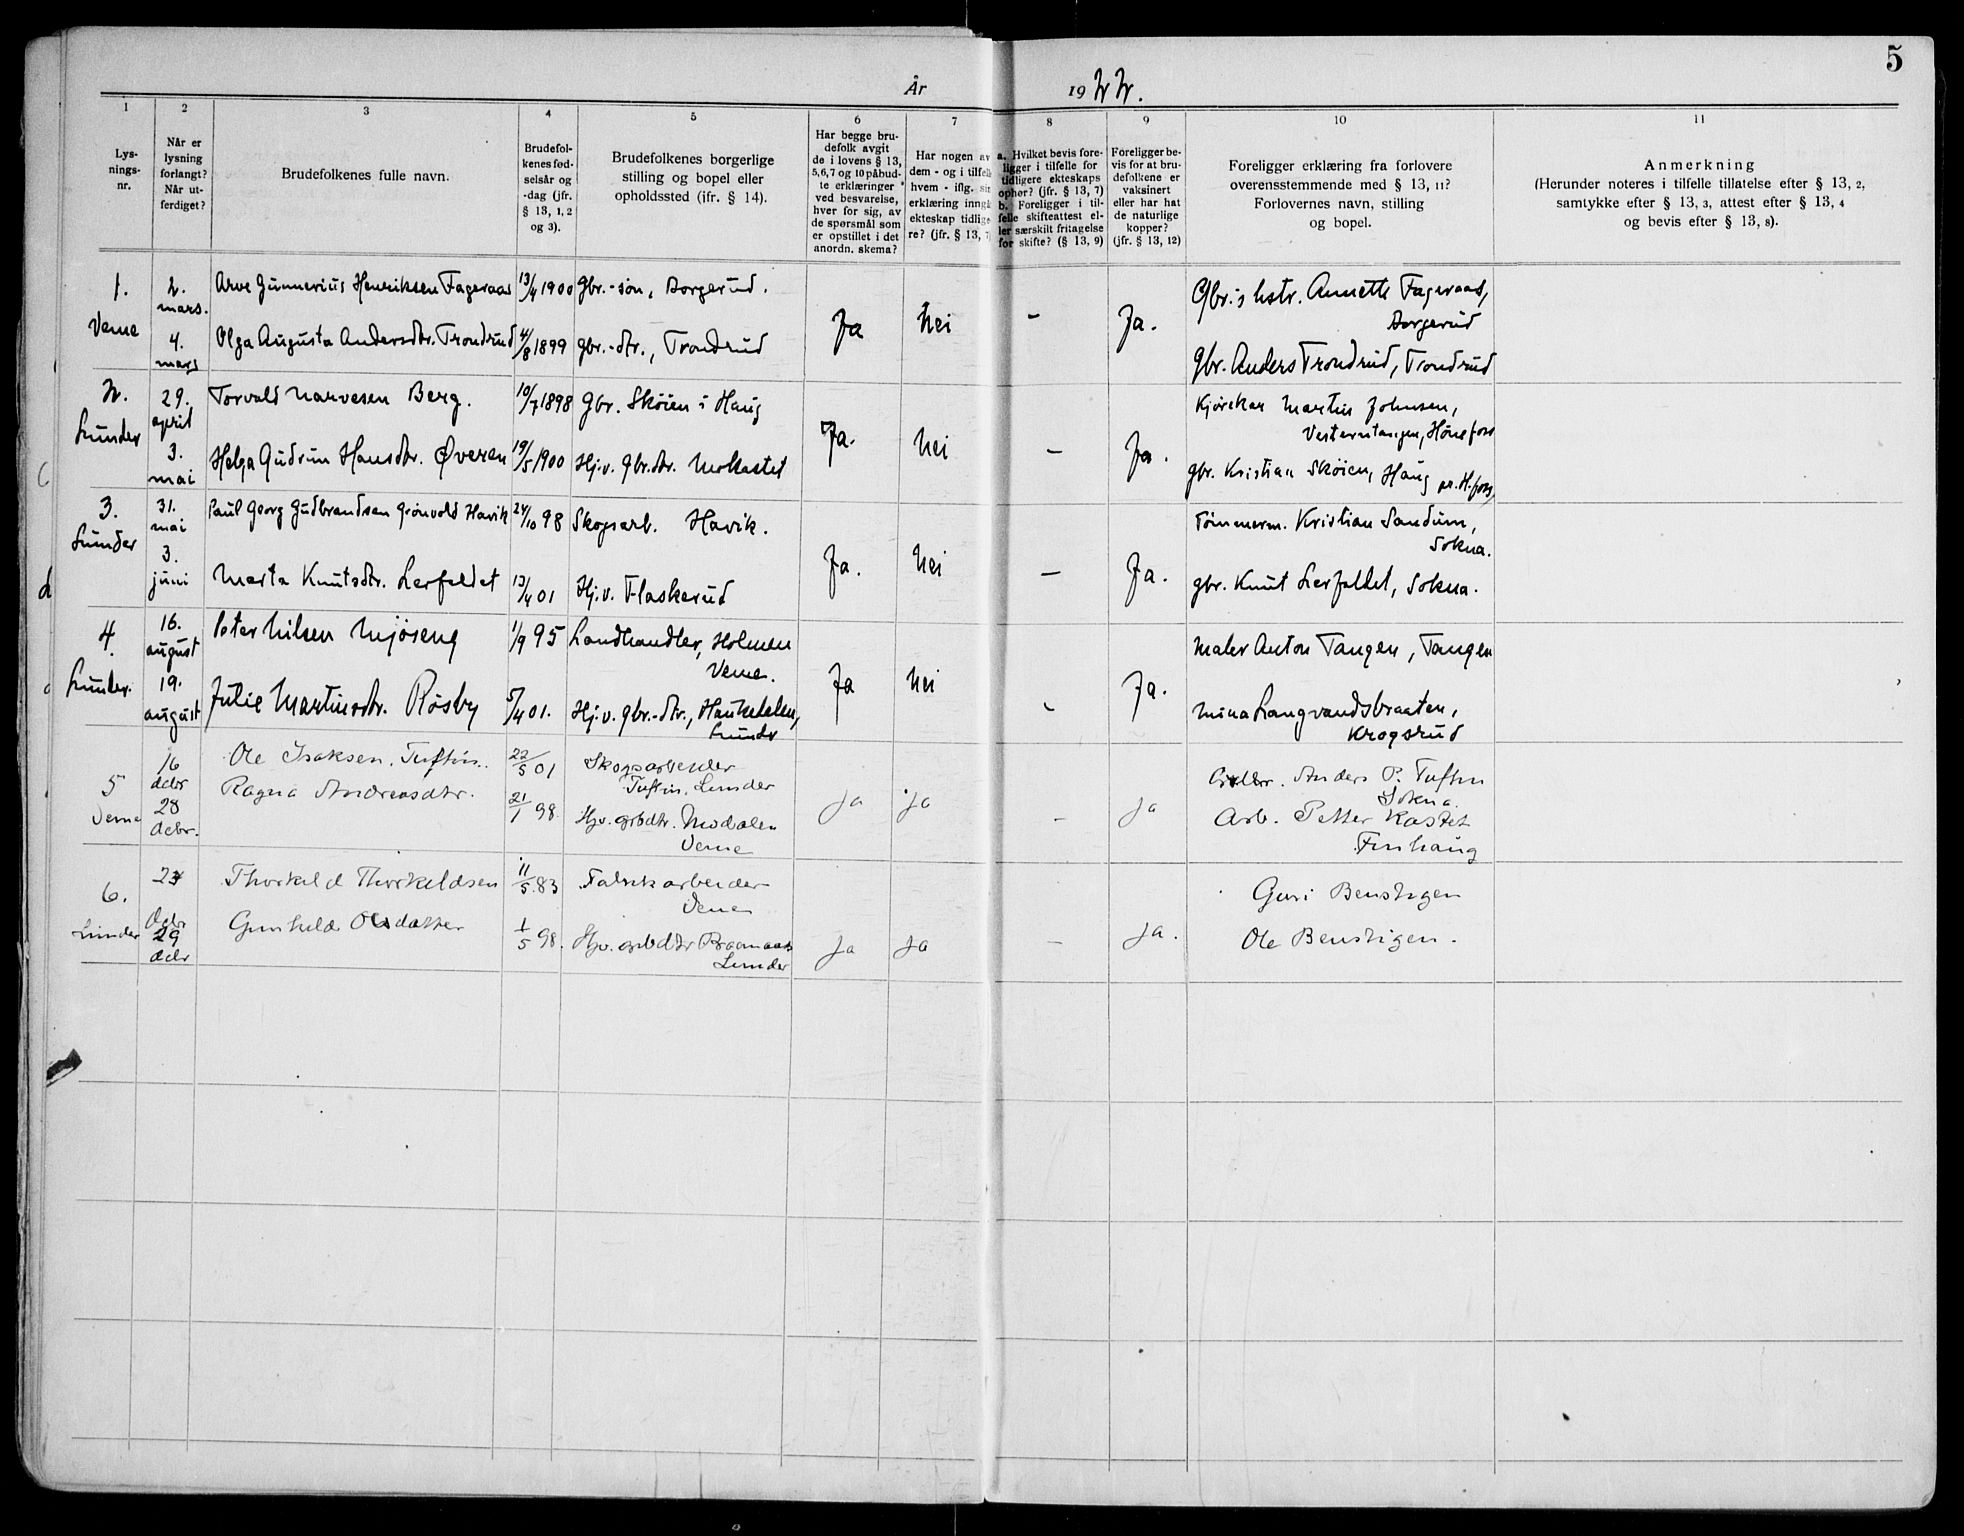 5
År 1922.
1 2 3 4 5 6 7 8 9 10 11
Lys-
nings-
nr.
Når er
lysning
forlangt?
Når ut-
ferdiget?
Brudefolkenes fulle navn.
Brudefol-
kenes fød-
selsår og
-dag (jfr.
§ 13, 1, 2
og 3).
Brudefolkenes borgerlige
stilling og bopel eller
opholdssted (ifr. § 14).
Har begge bru-
defolk avgit
de i lovens § 13,
5,6,7 og 10 påbud-
te erklæringer
ved besvarelse,
hver for sig, av
de spørsmål som
er opstillet i det
anordn. skema?
Har nogen av
dem - og i tilfelle
hvem - iflg. sin
erklæring inngå
ekteskap tidlige-
re? (jfr. § 13, 7)
a. Hvilket bevis fore-
ligger i tilfelle for
tidligere ekteskaps
ophør? (jfr. § 13, 7)
b. Foreligger i til-
felle skifteattest el-
ler særskilt fritagelse
for skifte? (§ 13, 9)
Foreligger be-
vis for at bru-
defolkene er
vaksinert
eller har hat
de naturlige
kopper?
(jfr. § 13, 12)
Foreligger erklæring fra forlovere
overensstemmende med § 13, 11?
Forlovernes navn, stilling
og bopel.
Anmerkning
(Herunder noteres i tilfelle tillatelse efter § 13, 2,
samtykke efter § 13, 3, attest efter § 13, 4
og bevis efter § 13, 8).
1.
Veme
2.
mars.
4.
mars
Arve Gunnerius Henriksen Fageraas
Olga Augusta Andersdtr. Trondrud
13/4 1900
4/8 1899
Gbr.-søn, Borgerud.
gbr.-dtr., Trondrud
Ja
Nei
-
Ja.
Gbr.'s hstr. Annette Fageraas,
Borgerud
gbr. Anders Trondrud, Trondrud
2.
Lunder
29.
april
3.
mai
Torvald Narvesen Berg.
Helga Gudrun Hansdtr. Øveren
10/7 1898
19/5 1900
Gbr. Skøien i Haug
Hj.v. gbr.dtr. Mokastet
Ja.
Nei
-
Ja.
Kjørekar Martin Johnsen,
Vesterntangen, Hønefoss
gbr. Kristian Skøien, Haug pr. H.foss
3.
Lunder
31.
mai
3.
juni
Paul Georg Gudbrandsen Grønvold Havik
Marta Knutsdtr. Lerfaldet
24/10 98
13/4 01
Skogsarb. Havik.
Hj.v. Flaskerud
Ja.
Nei
-
Ja.
Tømmerm. Kristian Sandum,
Sokna.
gbr. Knut Lerfaldet, Sokna.
4.
Lunder.
16.
august
19.
august
Peter Nilsen Mjøseng
Julie Martinsdtr. Røsby
1/9 95
5/4 01.
Landhandler, Holmen
Veme.
Hj.v. gbr.-dtr., Haukedalen,
Lunder
Ja
Nei
-
Ja.
Maler Anton Tangen, Tangen
Mina Langvandsbraaten,
Krogsrud
5
Veme
16
decbr
28
decbr.
Ole Isaksen Tuftin.
Ragna Andreasdtr.
22/5 01
21/1 98
Skogsarbeider
Tuftin, Lunder
Hjv. grbdtr. Modalen
Veme
Ja
ja
-
ja
Anders P. Tuftin
Sokna.
Arb. Petter Kastet
Finhaug
6.
Lunder
Decbr
29
decbr
Thorkild Thorkildsen
Gunhild Olsdatter
11/5 83
1/5 98.
Fabrikarbeider
Veme
Hjv. grbdtr Braanaas
Lunder
Ja
Ja
-
Ja.
Guri Benstigen
Ole Benstigen.